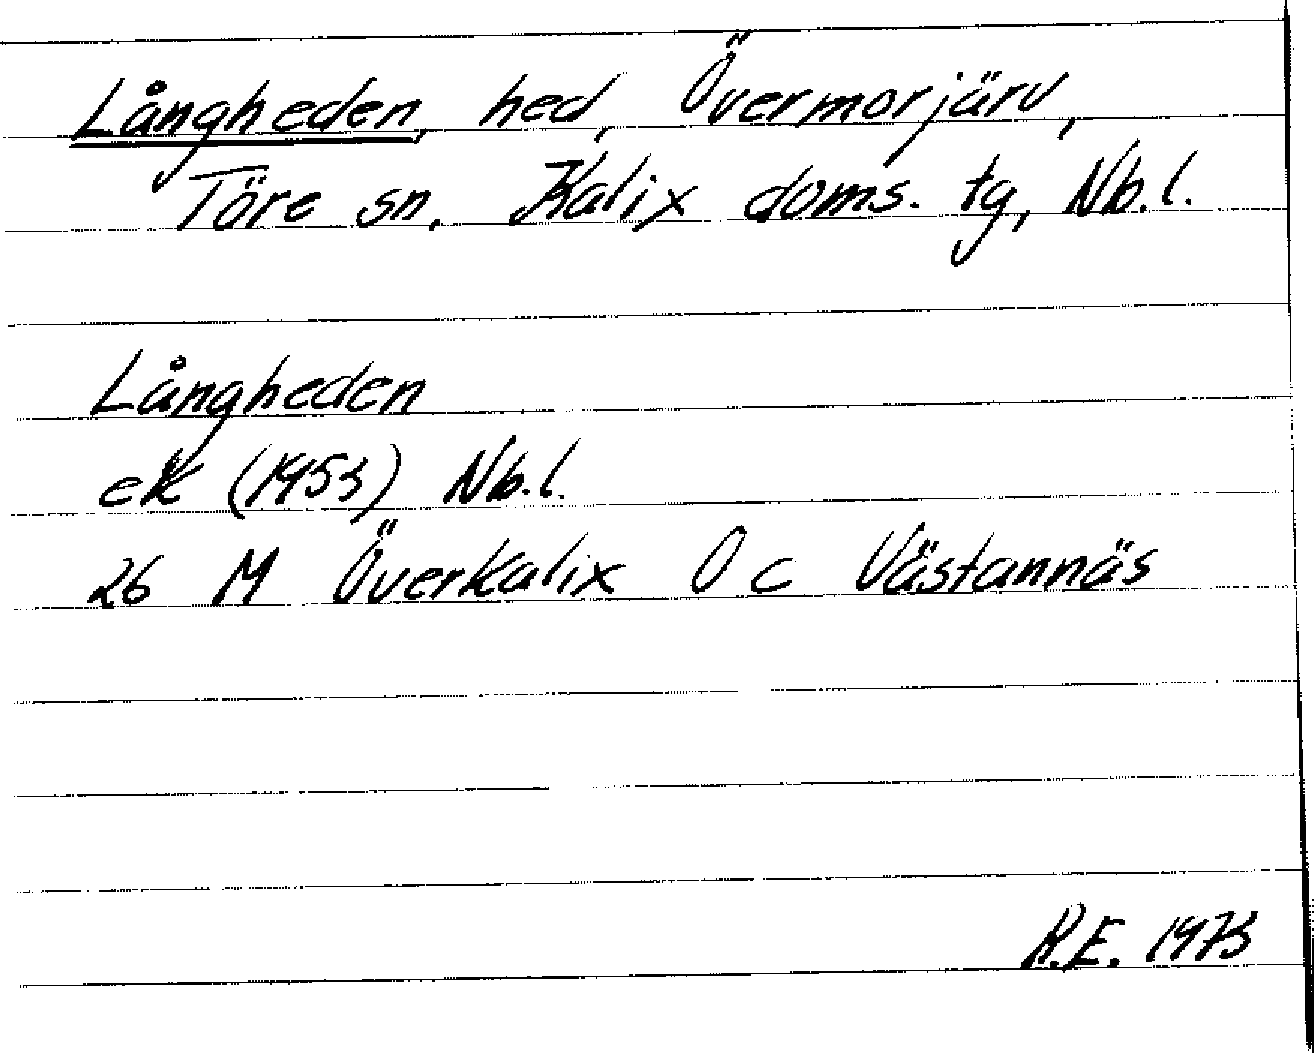 Långheden, hed, Övermorjärv,
Töre sn, Kalix doms. tg, Nb.l.
Långheden
ek (1953) Nb.l.
26 M Överkalix 0 c Västannäs
R.E. 1973